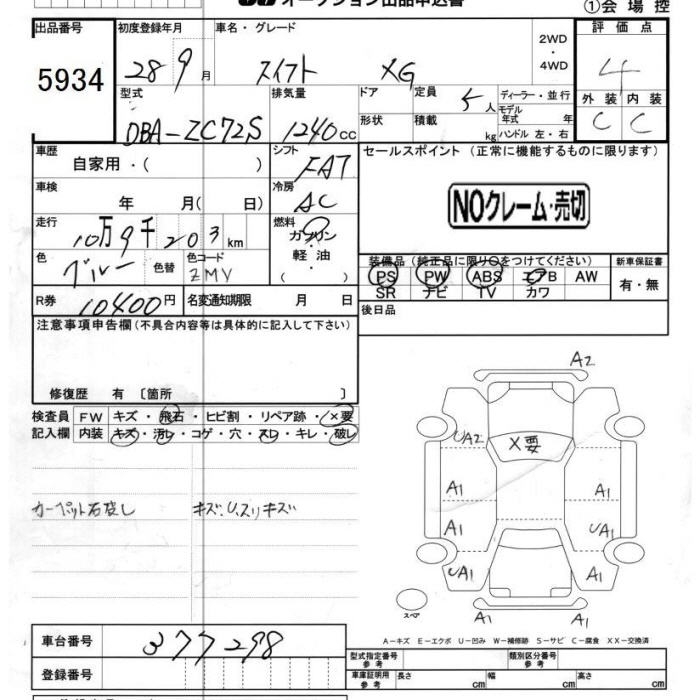 オークション出品申込書
①会場控
出品番号 初度登録年月 車名・グレード 評価点
5934 28 9月 スイフト XG 2WD・4WD 4
型式 排気量 ドア 定員 5人 ディーラー・並行 外装 内装
DBA-ZC72S 1240cc 形状 積載 kg モデル年式 年 ハンドル 左・右 C C
車歴 シフト セールスポイント (正常に機能するものに限ります)
自家用・( ) FAT
車検 冷房 NOクレーム・売切
年 月( 日) AC
走行 燃料
10万9千203km ガソリン・軽油・( )
色 色替 色コード 装備品(純正品に限り○をつけてください) 新車保証書
ブルー ZMV PS PW ABS エアB AW 有・無
SR ナビ TV カワ
R券 10400円 名変通知期限 月 日 後日品
注意事項申告欄(不具合内容等は具体的に記入して下さい)
修復歴 有 〔箇所 〕
検査員 FW キズ・飛石・ヒビ割・リペア跡・×要
記入欄 内装 キズ・汚レ・コゲ・穴・スレ・キレ・破レ
A2
UA2 X要
A1 A1
A1 UA1
UA1 A1
カーペット キズ、U、スリキズ
スペア
A-キズ E-エクボ U-凹み W-補修跡 S-サビ C-腐食 XX-交換済
車台番号 377298
登録番号
型式指定番号参考 類別区分番号参考
車庫証明用参考 長さ cm 幅 cm 高さ cm